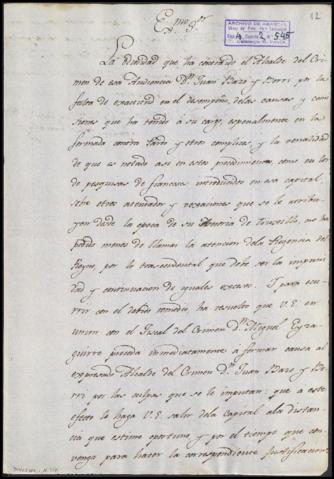 Exmo. Sor.
ARCHIVO DE ABASCAL
12
La nulidad que ha contraido el Alcalde del Cri
men de esa Audiencia Dn. Juan Bazo y Berri por la
falta de exactitud en el desempeño delas causas y comi
siones que ha tenido á su cargo, especialmente en la
formada contra Tardio y otros complices, y la venalidad
de que es notado asi en estos procedimientos como en los
de pesquisas de franceses introducidos en esa capital,
sobre otros atentados y vexaciones que se le atribu
yen desde la epoca de su Asesoria de Truxillo, no ha
podido menos de llamar la atencion dela Regencia del
Reyno, por lo trascendental que debe ser la impuni
dad y continuacion de iguales excesos. Y para ocu
rrir con el debido remedio, ha resuelto que V.E. en
union con el Fiscal del Crimen Dn. Miguel Eyza
guirre proceda inmediatamente á formar causa al
expresado Alcalde del Crimen Dn. Juan Bazo y Be
rri por las culpas que se le imputan: que a este
efecto lo haga V.E. salir dela Capital ala distan
cia que estime oportuna, y por el tiempo que con
venga para hacer la correspondiente justificacion